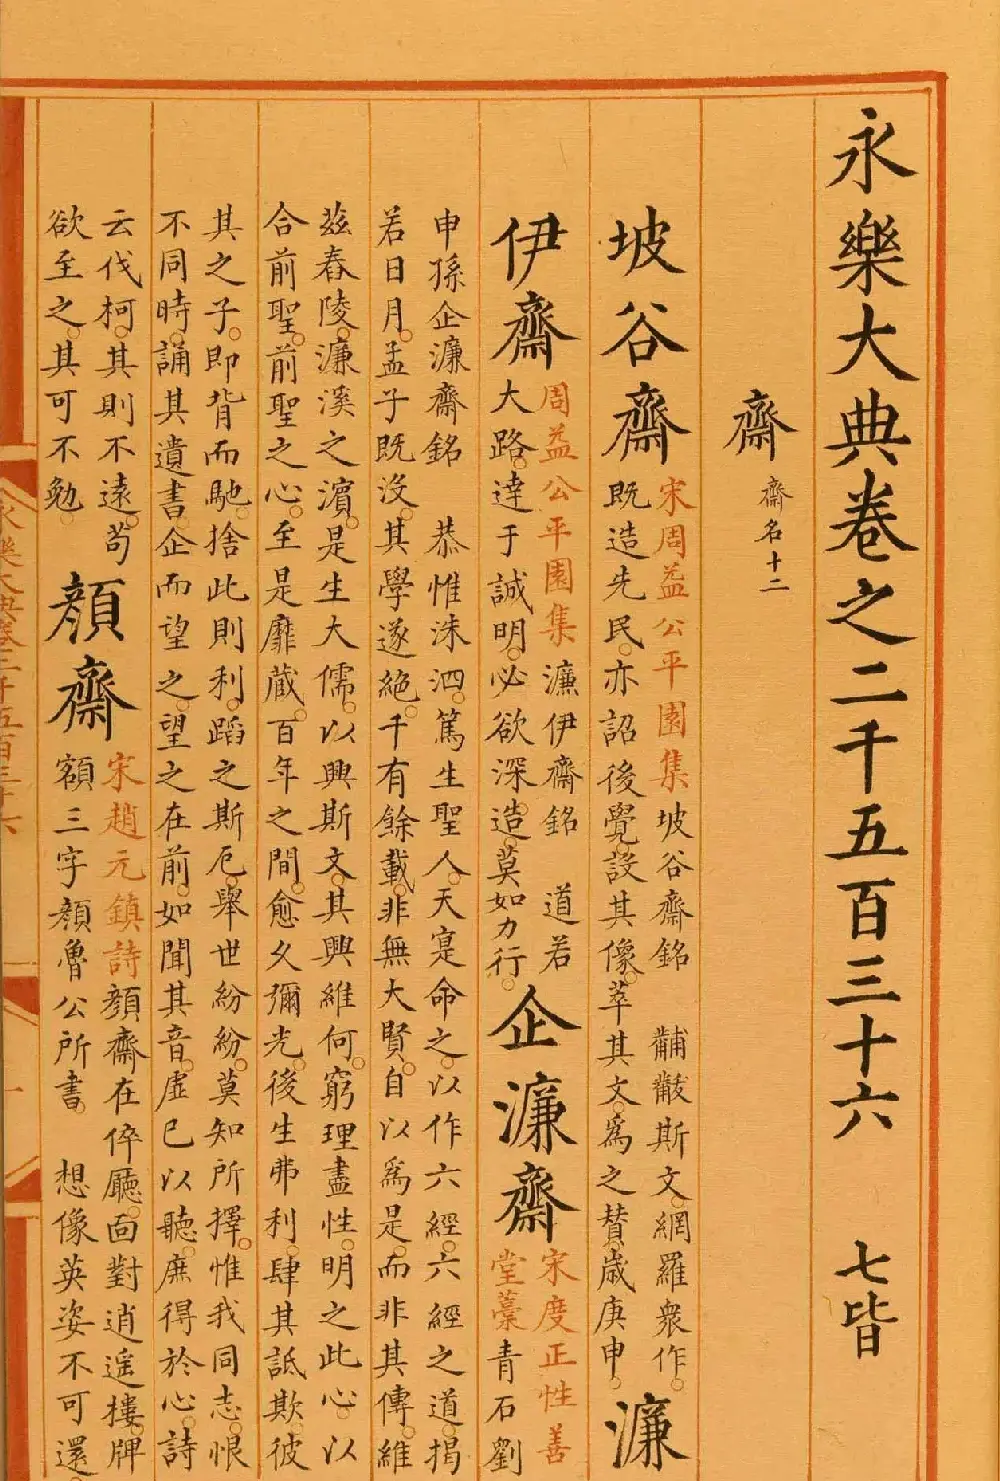 永樂大典卷之二千五百三十六 七皆
齋 齋名十二
坡谷齋
宋周益公平園集坡谷齋銘 黼黻斯文。網羅衆作。
既造先民。亦詔後覺。設其像。萃其文。爲之贊。歲庚申。
濂
伊齋
周益公平園集濂伊齋銘 道若
大路。達于誠明。必欲深造。莫如力行。
企濂齋
宋度正性善
堂藁青石劉
申孫企濂齋銘 恭惟洙泗。篤生聖人。天寔命之。以作六經。六經之道。揭
若日月。孟子既沒。其學遂絶。千有餘載。非無大賢。自以爲是。而非其傳。維
茲舂陵。濂溪之濵。是生大儒。以興斯文。其興維何。窮理盡性。明之此心。以
合前聖。前聖之心。至是靡蔵。百年之間。愈久彌光。後生弗利。肆其詆欺。彼
其之子。即背而馳。捨此則利。蹈之斯厄。舉世紛紛。莫知所擇。惟我同志。恨
不同時。誦其遺書。企而望之。望之在前。如聞其音。虛已以聽。庶得於心。詩
云伐柯。其則不遠。苟
欲至之。其可不勉。
顏齋
宋趙元鎮詩顏齋在倅廳。面對逍遥樓。牌
額三字顏魯公所書。 想像英姿不可還。
永樂大典卷二千五百三十六